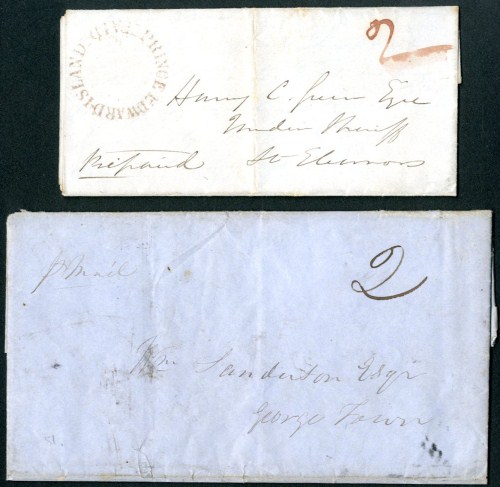 PRINCE EDWARD ISLAND.
2
Harry C. Green Esqr
Under Sheriff
Prepaid St Eleanors
p Mail
2
Wm Sanderson Esqr
George Town